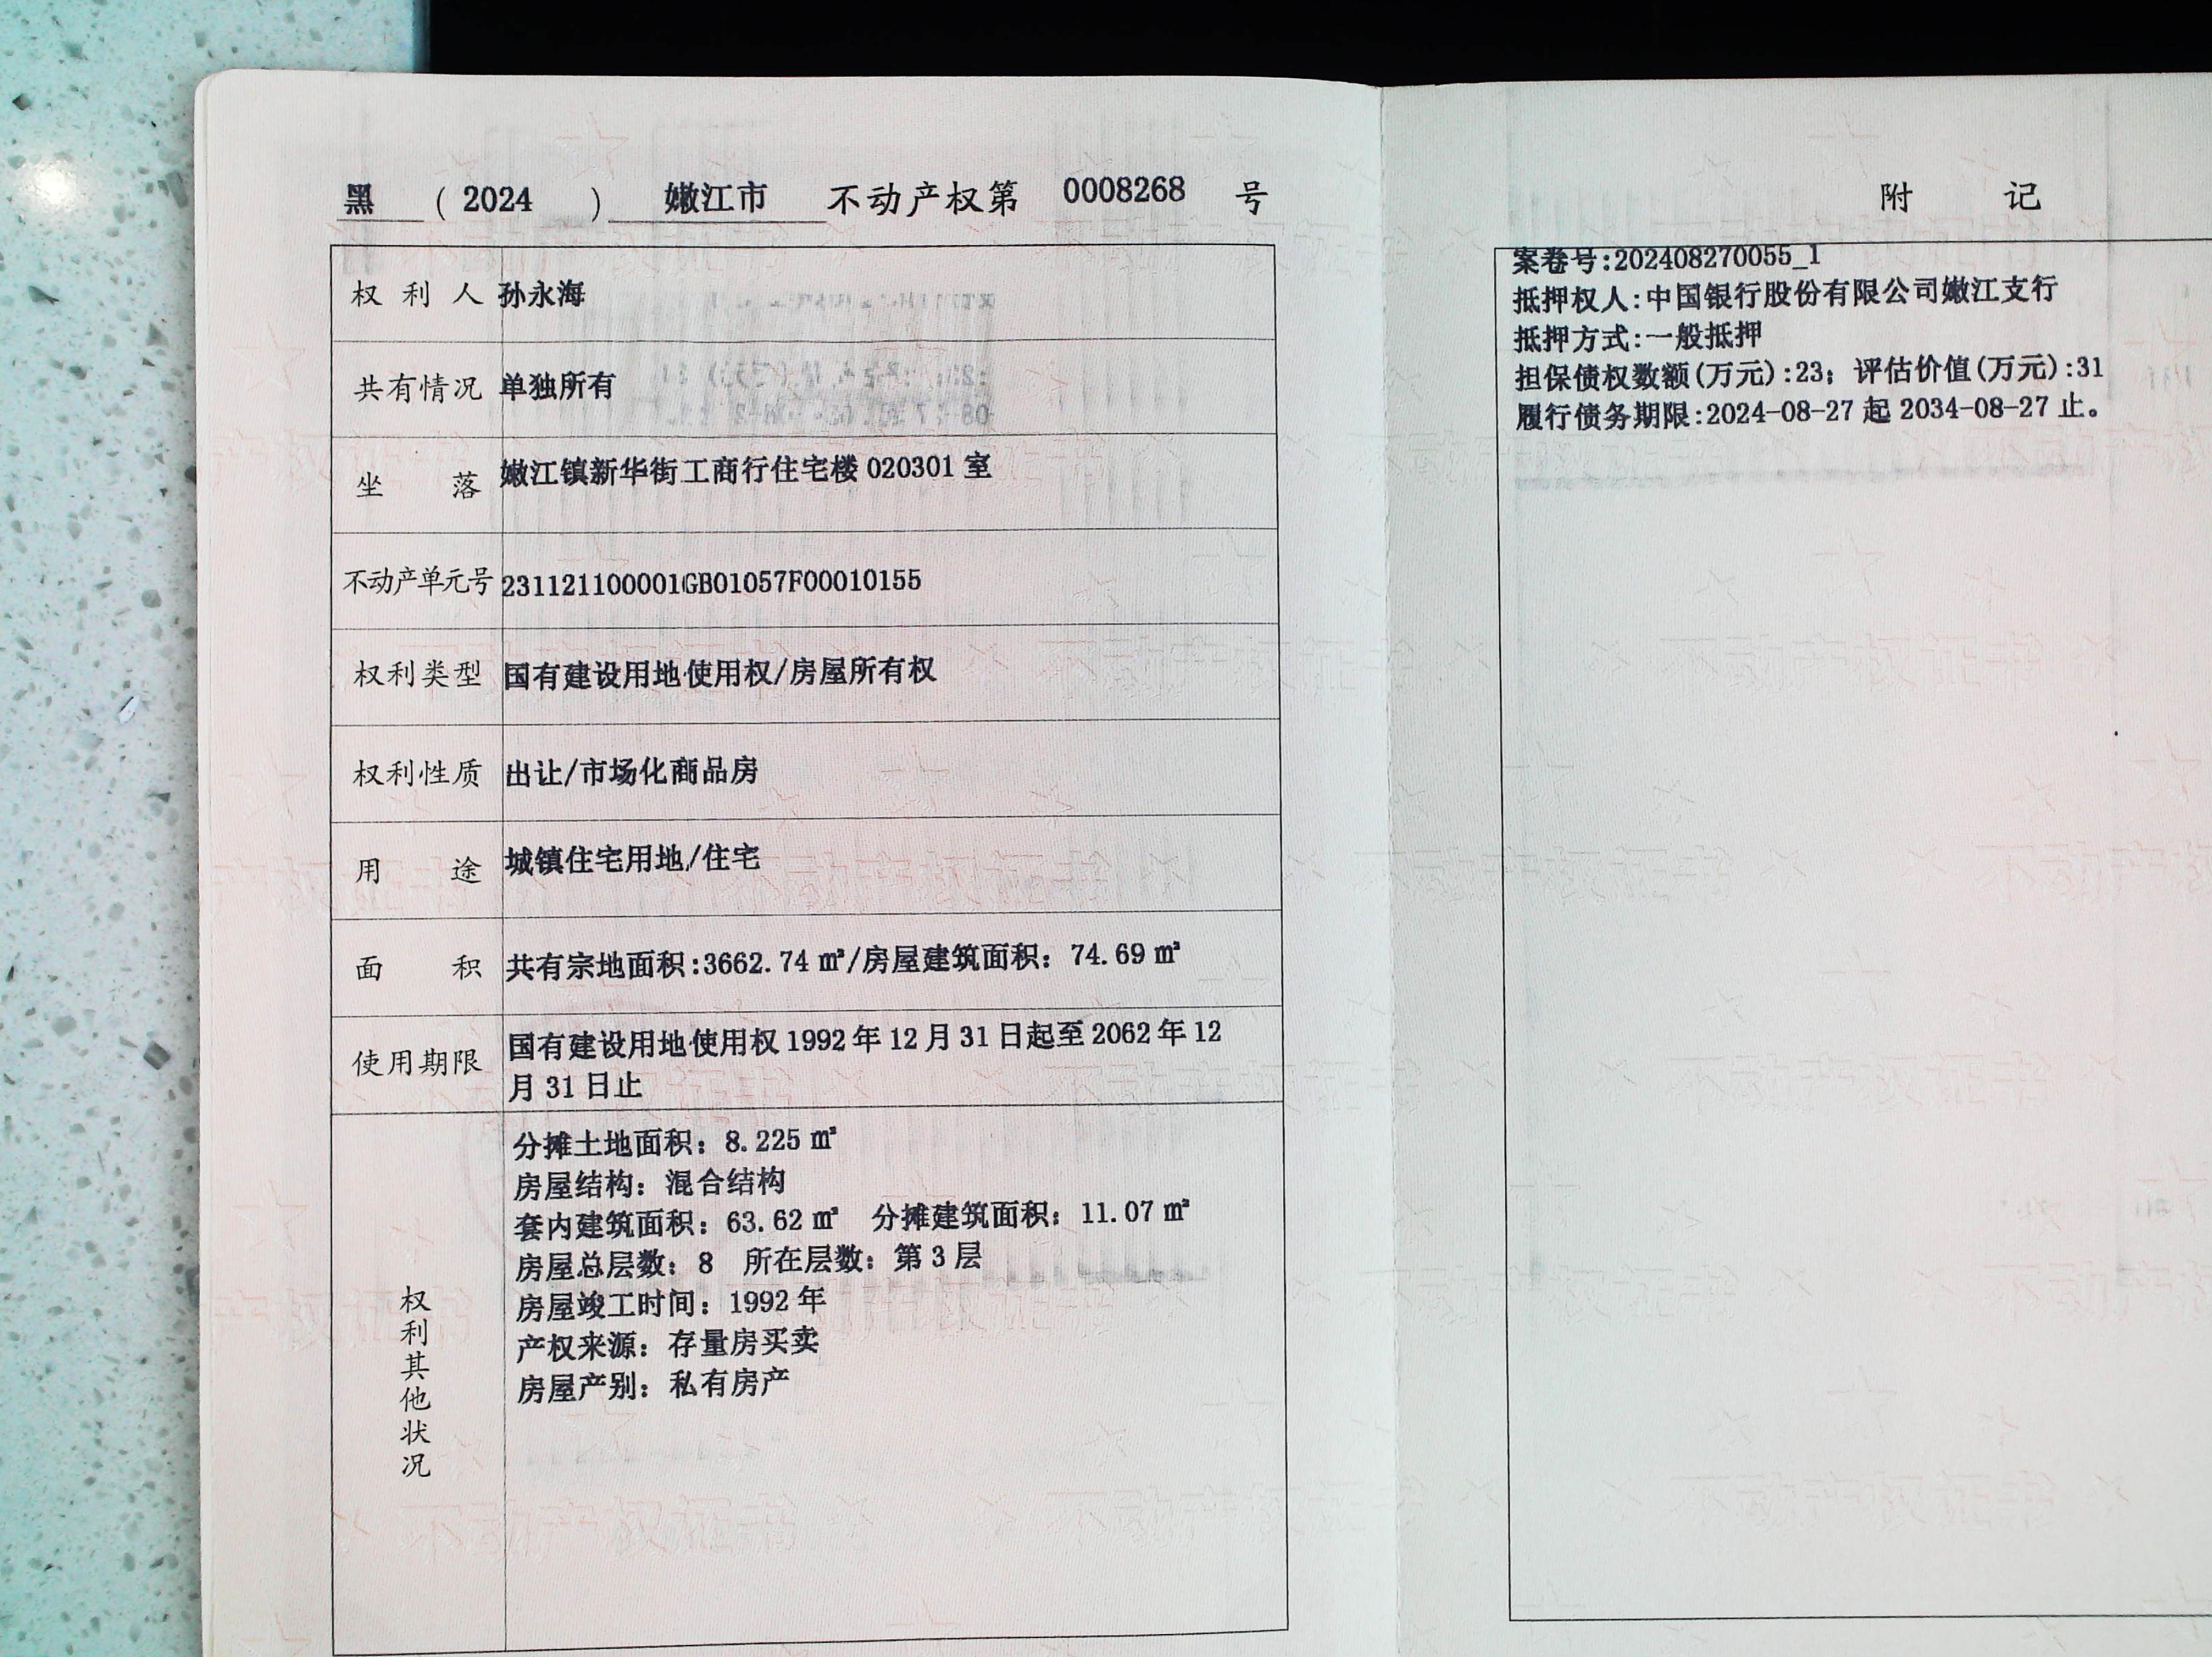 黑 ( 2024 ) 嫩江市 不动产权第 0008268 号
权利人 孙永海
共有情况 单独所有
坐落 嫩江镇新华街工商行住宅楼 020301 室
不动产单元号 231121100001GB01057F00010155
权利类型 国有建设用地使用权/房屋所有权
权利性质 出让/市场化商品房
用途 城镇住宅用地/住宅
面积 共有宗地面积:3662.74 ㎡/房屋建筑面积：74.69 ㎡
使用期限 国有建设用地使用权 1992 年 12 月 31 日起至 2062 年 12
月 31 日止
权利其他状况
分摊土地面积：8.225 ㎡
房屋结构：混合结构
套内建筑面积：63.62 ㎡ 分摊建筑面积：11.07 ㎡
房屋总层数：8 所在层数：第 3 层
房屋竣工时间：1992 年
产权来源：存量房买卖
房屋产别：私有房产
附 记
案卷号:202408270055_1
抵押权人:中国银行股份有限公司嫩江支行
抵押方式:一般抵押
担保债权数额(万元):23；评估价值(万元):31
履行债务期限:2024-08-27 起 2034-08-27 止。